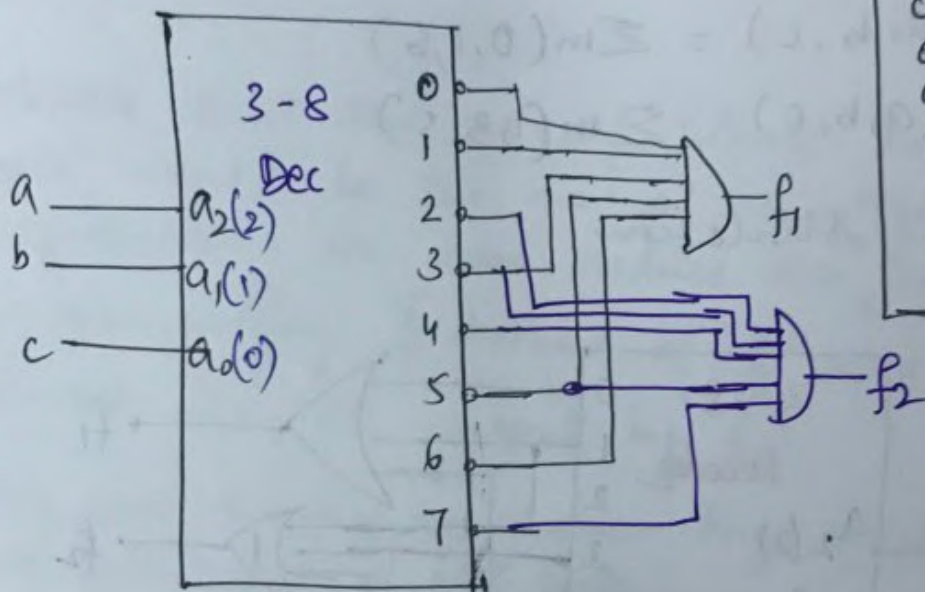 3-8
Dec
a
b
c
a₂(2)
a₁(1)
a₀(0)
0
1
2
3
4
5
6
7
f₁
f₂